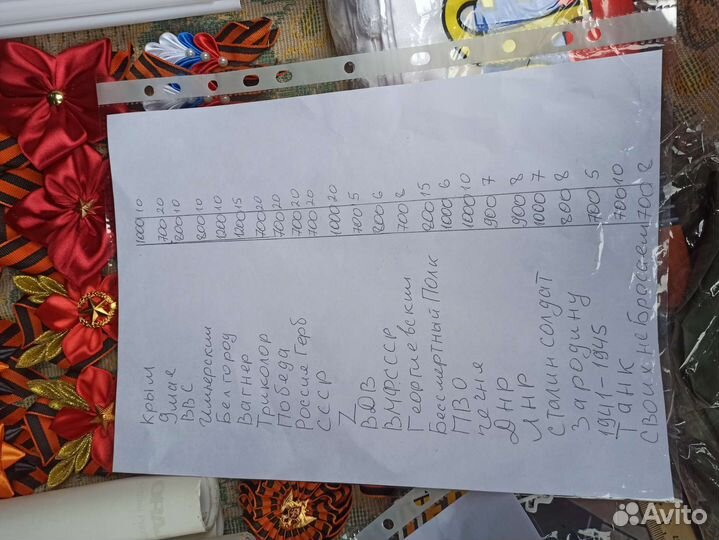 Крым 1000 10
9 мае 700 20
ВВС 800 10
Имперский 800 10
Белгород 1000 10
Вагнер 1000 15
Триколор 700 20
Победа 700 20
Россия Герб 700 20
СССР 700 20
Z 1000 20
ВДВ 700 5
ВМФ СССР 800 6
Георгиевский 700 8
Бессмертный Полк 800 15
ПВО 1000 6
Чечня 1000 10
ДНР 900 7
ЛНР 900 8
Сталин солдат 1000 7
За родину 800 8
1941-1945 700 5
Танк 700 10
Своих не бросаем 700 2
Avito